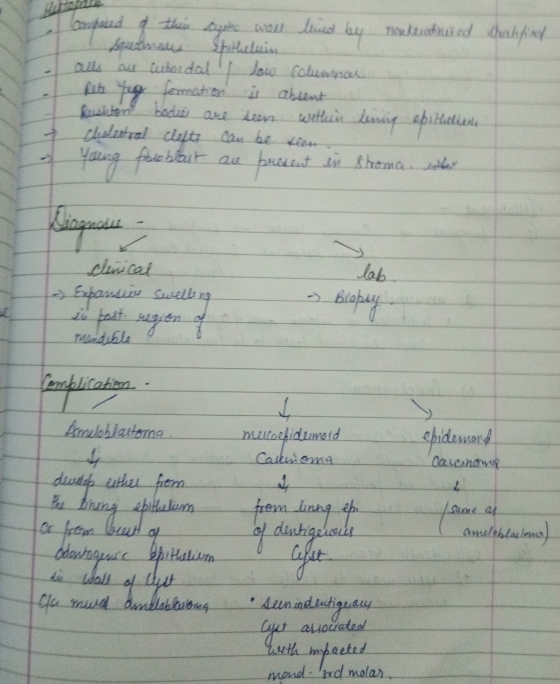 - Composed of thin cystic wall lined by nonkeratinized stratified
squamous epithelium
- cells are cuboidal / low columnar
- Rete peg formation is absent
- Rushton bodies are seen within lining epithelium.
→ cholestral clefts can be seen.
→ Young fibroblast are present in stroma.
Diagnosis -
clinical
lab.
→ Expansive swelling
in post region of
mandible
→ Biopsy
Complication -
Ameloblastoma.
↓
develop either from
the lining epithelium
or from rest of
odontogenic epithelium
in wall of cyst
c/a mural ameloblastoma
↓
mucoepidermoid
Carcinoma
↓
from lining epi
of dentigerous
Cyst.
• seen in dentigerous
cyst associated
with impacted
mand. 3rd molar.
epidermoid
Carcinoma
↓
(same as
ameloblastoma)